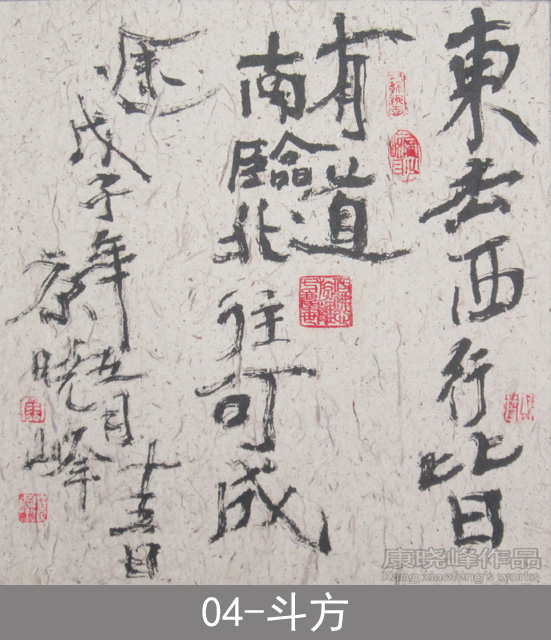 東去西行皆
有道
南臨北往可成
康
戊子年五月十五日
康曉峰
康晓峰作品
Kang xiaofeng's works
04-斗方